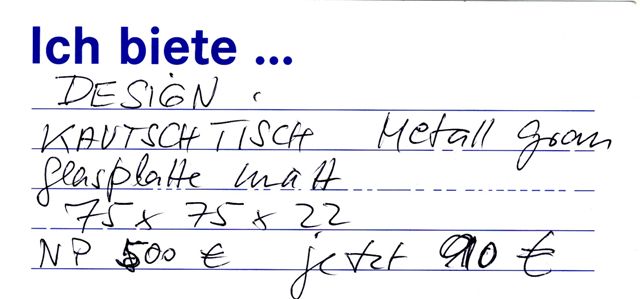 Ich biete ...
DESIGN.
KAUTSCHTISCH Metall grau
glasplatte matt
75 x 75 x 22
NP 500 € jetzt 90 €